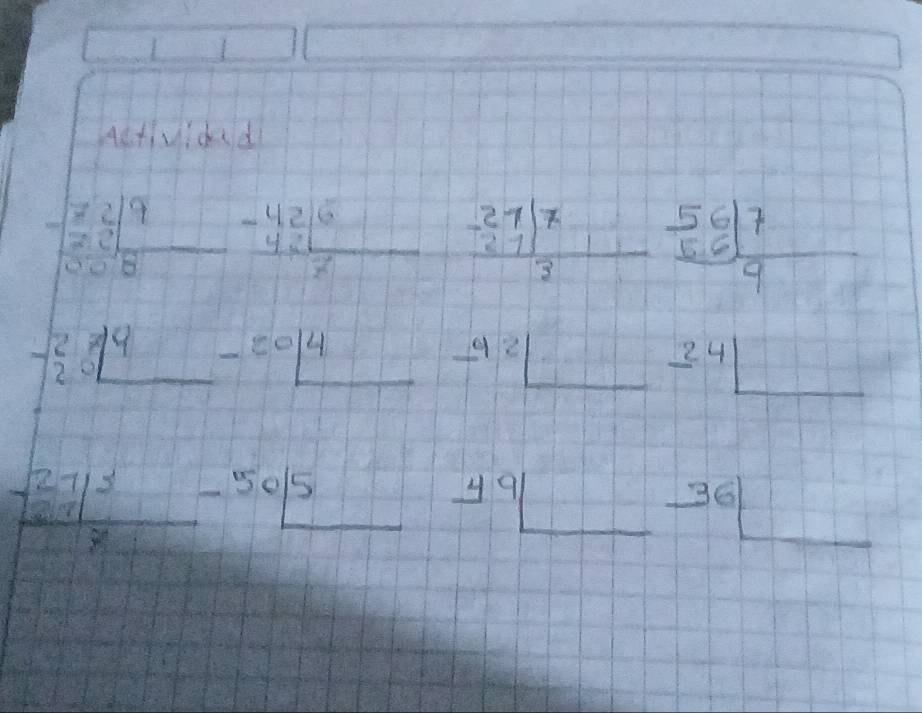 Actividad
-72|9 -42|6 -21|7 -56|7
72 42 21 56
008 7 3 9
-27|9 -20|4 -42| -24|
20
-21|3 -50|5 -49| -36|
21
7